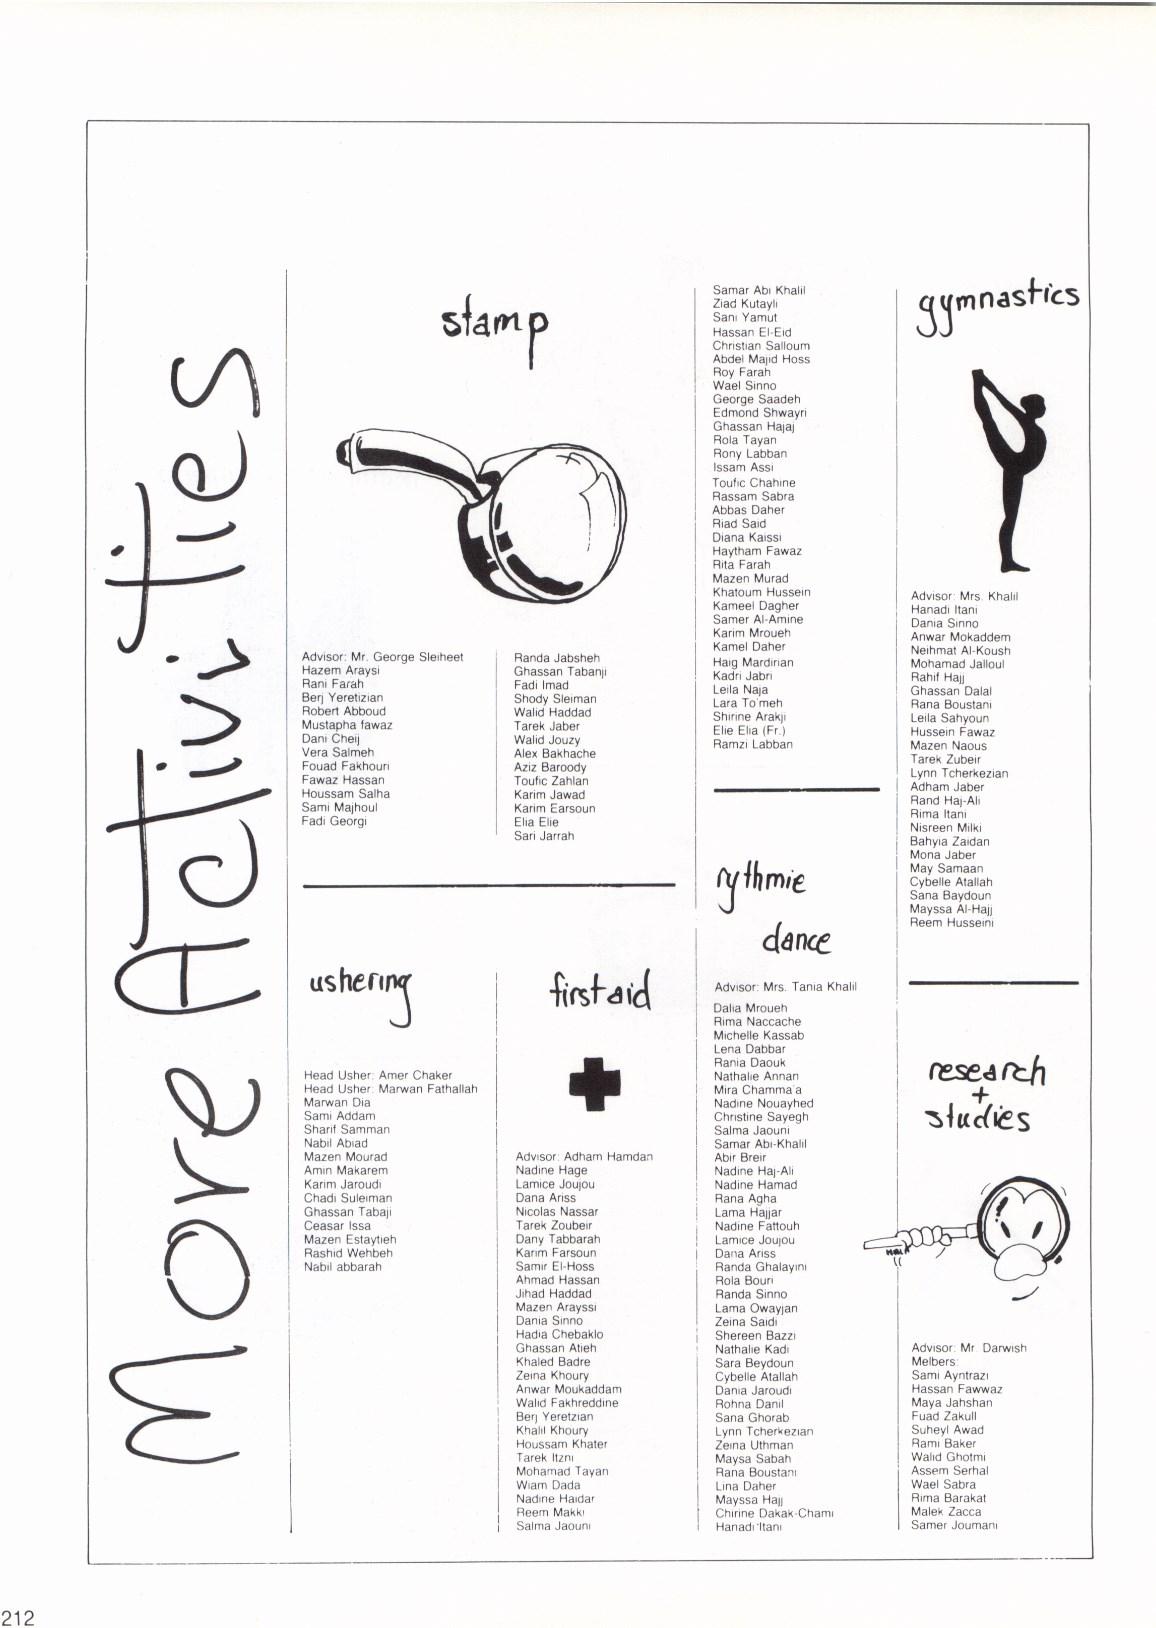 More Activities
stamp
Advisor: Mr. George Sleiheet
Hazem Araysi
Rani Farah
Berj Yeretizian
Robert Abboud
Mustapha fawaz
Dani Cheij
Vera Salmeh
Fouad Fakhouri
Fawaz Hassan
Houssam Salha
Sami Majhoul
Fadi Georgi
Randa Jabsheh
Ghassan Tabanji
Fadi Imad
Shody Sleiman
Walid Haddad
Tarek Jaber
Walid Jouzy
Alex Bakhache
Aziz Baroody
Toufic Zahlan
Karim Jawad
Karim Earsoun
Elia Elie
Sari Jarrah
Samar Abi Khalil
Ziad Kutayli
Sani Yamut
Hassan El-Eid
Christian Salloum
Abdel Majid Hoss
Roy Farah
Wael Sinno
George Saadeh
Edmond Shwayri
Ghassan Hajaj
Rola Tayan
Rony Labban
Issam Assi
Toufic Chahine
Rassam Sabra
Abbas Daher
Riad Said
Diana Kaissi
Haytham Fawaz
Rita Farah
Mazen Murad
Khatoum Hussein
Kameel Dagher
Samer Al-Amine
Karim Mroueh
Kamel Daher
Haig Mardirian
Kadri Jabri
Leila Naja
Lara To'meh
Shirine Arakji
Elie Elia (Fr.)
Ramzi Labban
ushering
Head Usher: Amer Chaker
Head Usher: Marwan Fathallah
Marwan Dia
Sami Addam
Sharif Samman
Nabil Abiad
Mazen Mourad
Amin Makarem
Karim Jaroudi
Chadi Suleiman
Ghassan Tabaji
Ceasar Issa
Mazen Estaytieh
Rashid Wehbeh
Nabil abbarah
first aid
Advisor: Adham Hamdan
Nadine Hage
Lamice Joujou
Dana Ariss
Nicolas Nassar
Tarek Zoubeir
Dany Tabbarah
Karim Farsoun
Samir El-Hoss
Ahmad Hassan
Jihad Haddad
Mazen Arayssi
Dania Sinno
Hadia Chebaklo
Ghassan Atieh
Khaled Badre
Zeina Khoury
Anwar Moukaddam
Walid Fakhreddine
Berj Yeretzian
Khalil Khoury
Houssam Khater
Tarek Itzni
Mohamad Tayan
Wiam Dada
Nadine Haidar
Reem Makki
Salma Jaouni
rythmie
dance
Advisor: Mrs. Tania Khalil
Dalia Mroueh
Rima Naccache
Michelle Kassab
Lena Dabbar
Rania Daouk
Nathalie Annan
Mira Chamma'a
Nadine Nouayhed
Christine Sayegh
Salma Jaouni
Samar Abi-Khalil
Abir Breir
Nadine Haj-Ali
Nadine Hamad
Rana Agha
Lama Hajjar
Nadine Fattouh
Lamice Joujou
Dana Ariss
Randa Ghalayini
Rola Bouri
Randa Sinno
Lama Owayjan
Zeina Saidi
Shereen Bazzi
Nathalie Kadi
Sara Beydoun
Cybelle Atallah
Dania Jaroudi
Rohna Danil
Sana Ghorab
Lynn Tcherkezian
Zeina Uthman
Maysa Sabah
Rana Boustani
Lina Daher
Mayssa Hajj
Chirine Dakak-Chami
Hanadi Itani
gymnastics
Advisor: Mrs. Khalil
Hanadi Itani
Dania Sinno
Anwar Mokaddem
Neihmat Al-Koush
Mohamad Jalloul
Rahif Hajj
Ghassan Dalal
Rana Boustani
Leila Sahyoun
Hussein Fawaz
Mazen Naous
Tarek Zubeir
Lynn Tcherkezian
Adham Jaber
Rand Haj-Ali
Rima Itani
Nisreen Milki
Bahyia Zaidan
Mona Jaber
May Samaan
Cybelle Atallah
Sana Baydoun
Mayssa Al-Hajj
Reem Husseini
research
+
studies
Advisor: Mr. Darwish
Melbers:
Sami Ayntrazi
Hassan Fawwaz
Maya Jahshan
Fuad Zakull
Suheyl Awad
Rami Baker
Walid Ghotmi
Assem Serhal
Wael Sabra
Rima Barakat
Malek Zacca
Samer Joumani
212